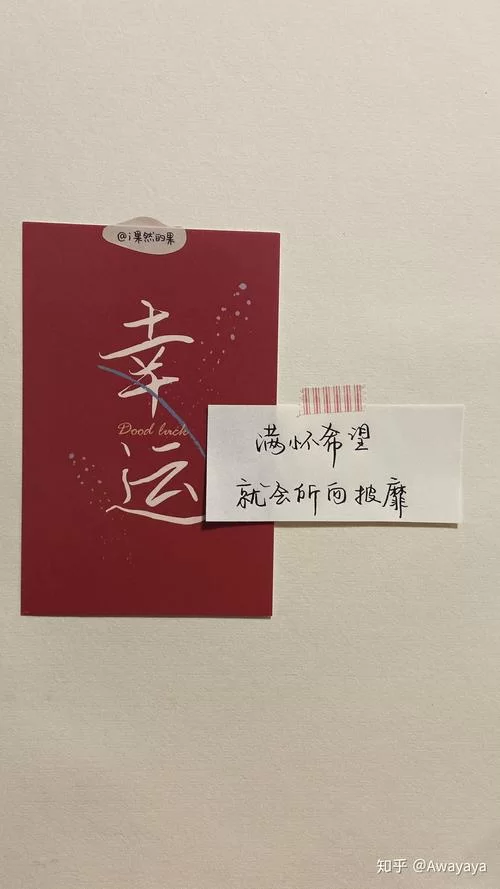 @i果然的果
幸
Dood luck
运
满怀希望
就会所向披靡
知乎 @Awayaya